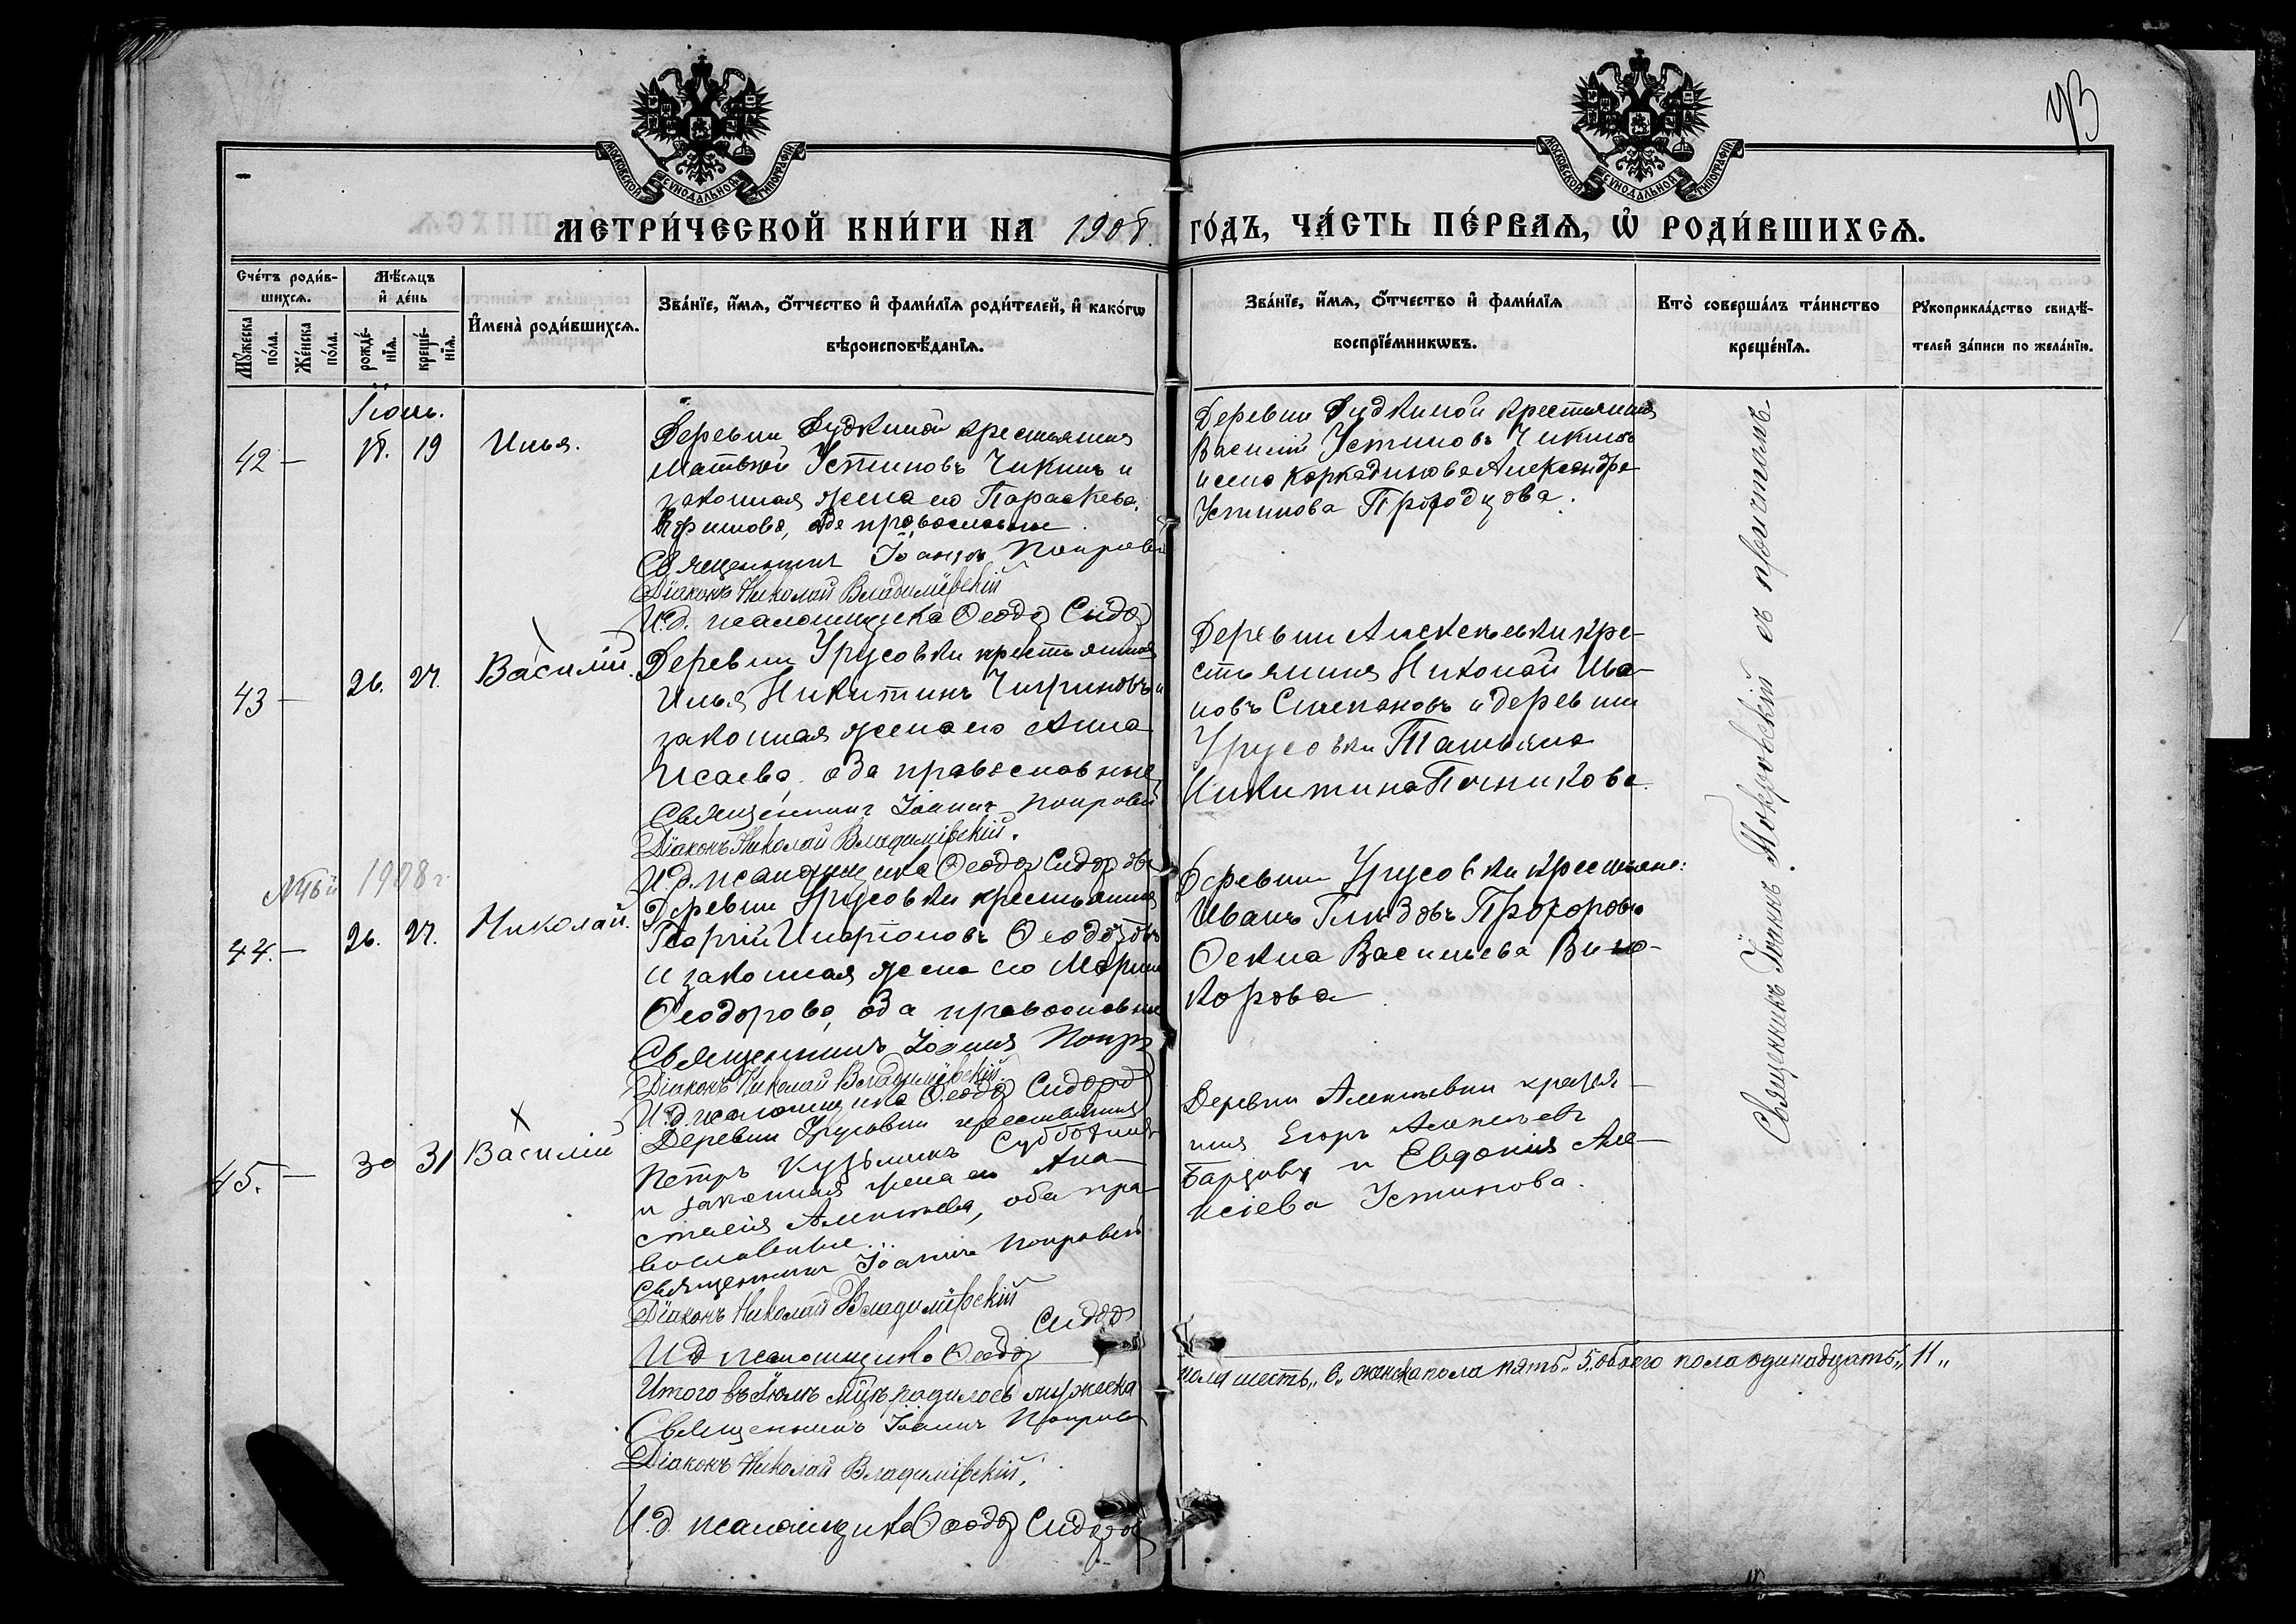 МОСКОВСКОЙ СѴНОДАЛЬНОЙ ТИПОГРАФІИ
МОСКОВСКОЙ СѴНОДАЛЬНОЙ ТИПОГРАФІИ
МЕТРИ́ЧЕСКОЙ КНИ́ГИ НА 1908. ГО́ДЪ, ЧА́СТЬ ПЕ́РВАѦ, Ѡ҆ РОДИ́ВШИХСѦ.
Сче́тъ роди́в-
шихсѧ.
Мꙋ́жеска по́ла.
Же́нска по́ла.
Мѣ́сѧцъ
и҆ де́нь
рожде́-
нїѧ.
креще́-
нїѧ.
И҆мена̀ роди́вшихсѧ.
Зва́нїе, и҆́мѧ, ѻ҆́тчество и҆ фами́лїѧ роди́телей, и҆ како́гѡ
вѣроисповѣ́данїѧ.
Зва́нїе, и҆́мѧ, ѻ҆́тчество и҆ фами́лїѧ
воспрїе́мникѡвъ.
Кто̀ соверша́лъ та́инство
креще́нїѧ.
Рꙋкоприкла́дство свидѣ́-
телей за́писи по жела́нїю.
42 —
19
Илья.
Деревни Дудкиной крестьянинъ
Матвѣй Устиновъ Чикинъ и
законная жена его Параскева
оба православные
Священникъ Іоаннъ Покровск
Діаконъ Николай Владимірскій
И.д. псаломщика Ѳеодо Сидо
Деревни Дудкиной крестьянинъ
Василій Устиновъ Чикинъ
и села Коркодинова Александра
Устинова
43 —
26. 27.
Василій.
Деревни Урусовки крестьянинъ
Илья Никитинъ и
законная жена его Анна
Исаева, оба православные
Священникъ Іоаннъ Покровск
Діаконъ Николай Владимірскій.
И.д. псаломщика Ѳеодо Сидоровъ
Деревни Алексѣевки кре-
стьянинъ Николай Ива-
новъ Степановъ и деревни
Урусовки Татьяна
Никитина
1908 г
44. —
26. 27.
Николай.
Деревни Урусовки крестьянинъ
Георгій
и законная жена его Марина
Ѳеодорова, оба православные
Священникъ Іоаннъ Покр
Діаконъ Николай Владимірскій.
И.д. псаломщика Ѳеодо Сидоро
Деревни Урусовки крестьяне:
Иванъ Глѣбовъ Прохоровъ
Ѳекла Васильева Вино-
курова
45. —
30 31
Василій
Деревни Урусовки крестьянинъ
Петръ Кузьминъ Субботинъ
и законная жена его Ана-
стасія Алексѣева, оба пра-
вославные.
Священникъ Іоаннъ Покровскій
Діаконъ Николай Владимірскій
Сидор
И.д. псаломщика Ѳеодо
Деревни Алексѣевки крестья-
нинъ Егоръ Алексѣевъ
и Евдокія Але-
ксіева Устинова.
Священникъ Іоаннъ Покровскій съ причтомъ
Итого въ мцѣ родилось мужеска
пола шесть „6„ женска пола пять „5„ обоего пола одинадцать „11„
Священникъ Іоаннъ Покровск
Діаконъ Николай Владимірскій.
И.д. псаломщика Ѳеодо Сидоров